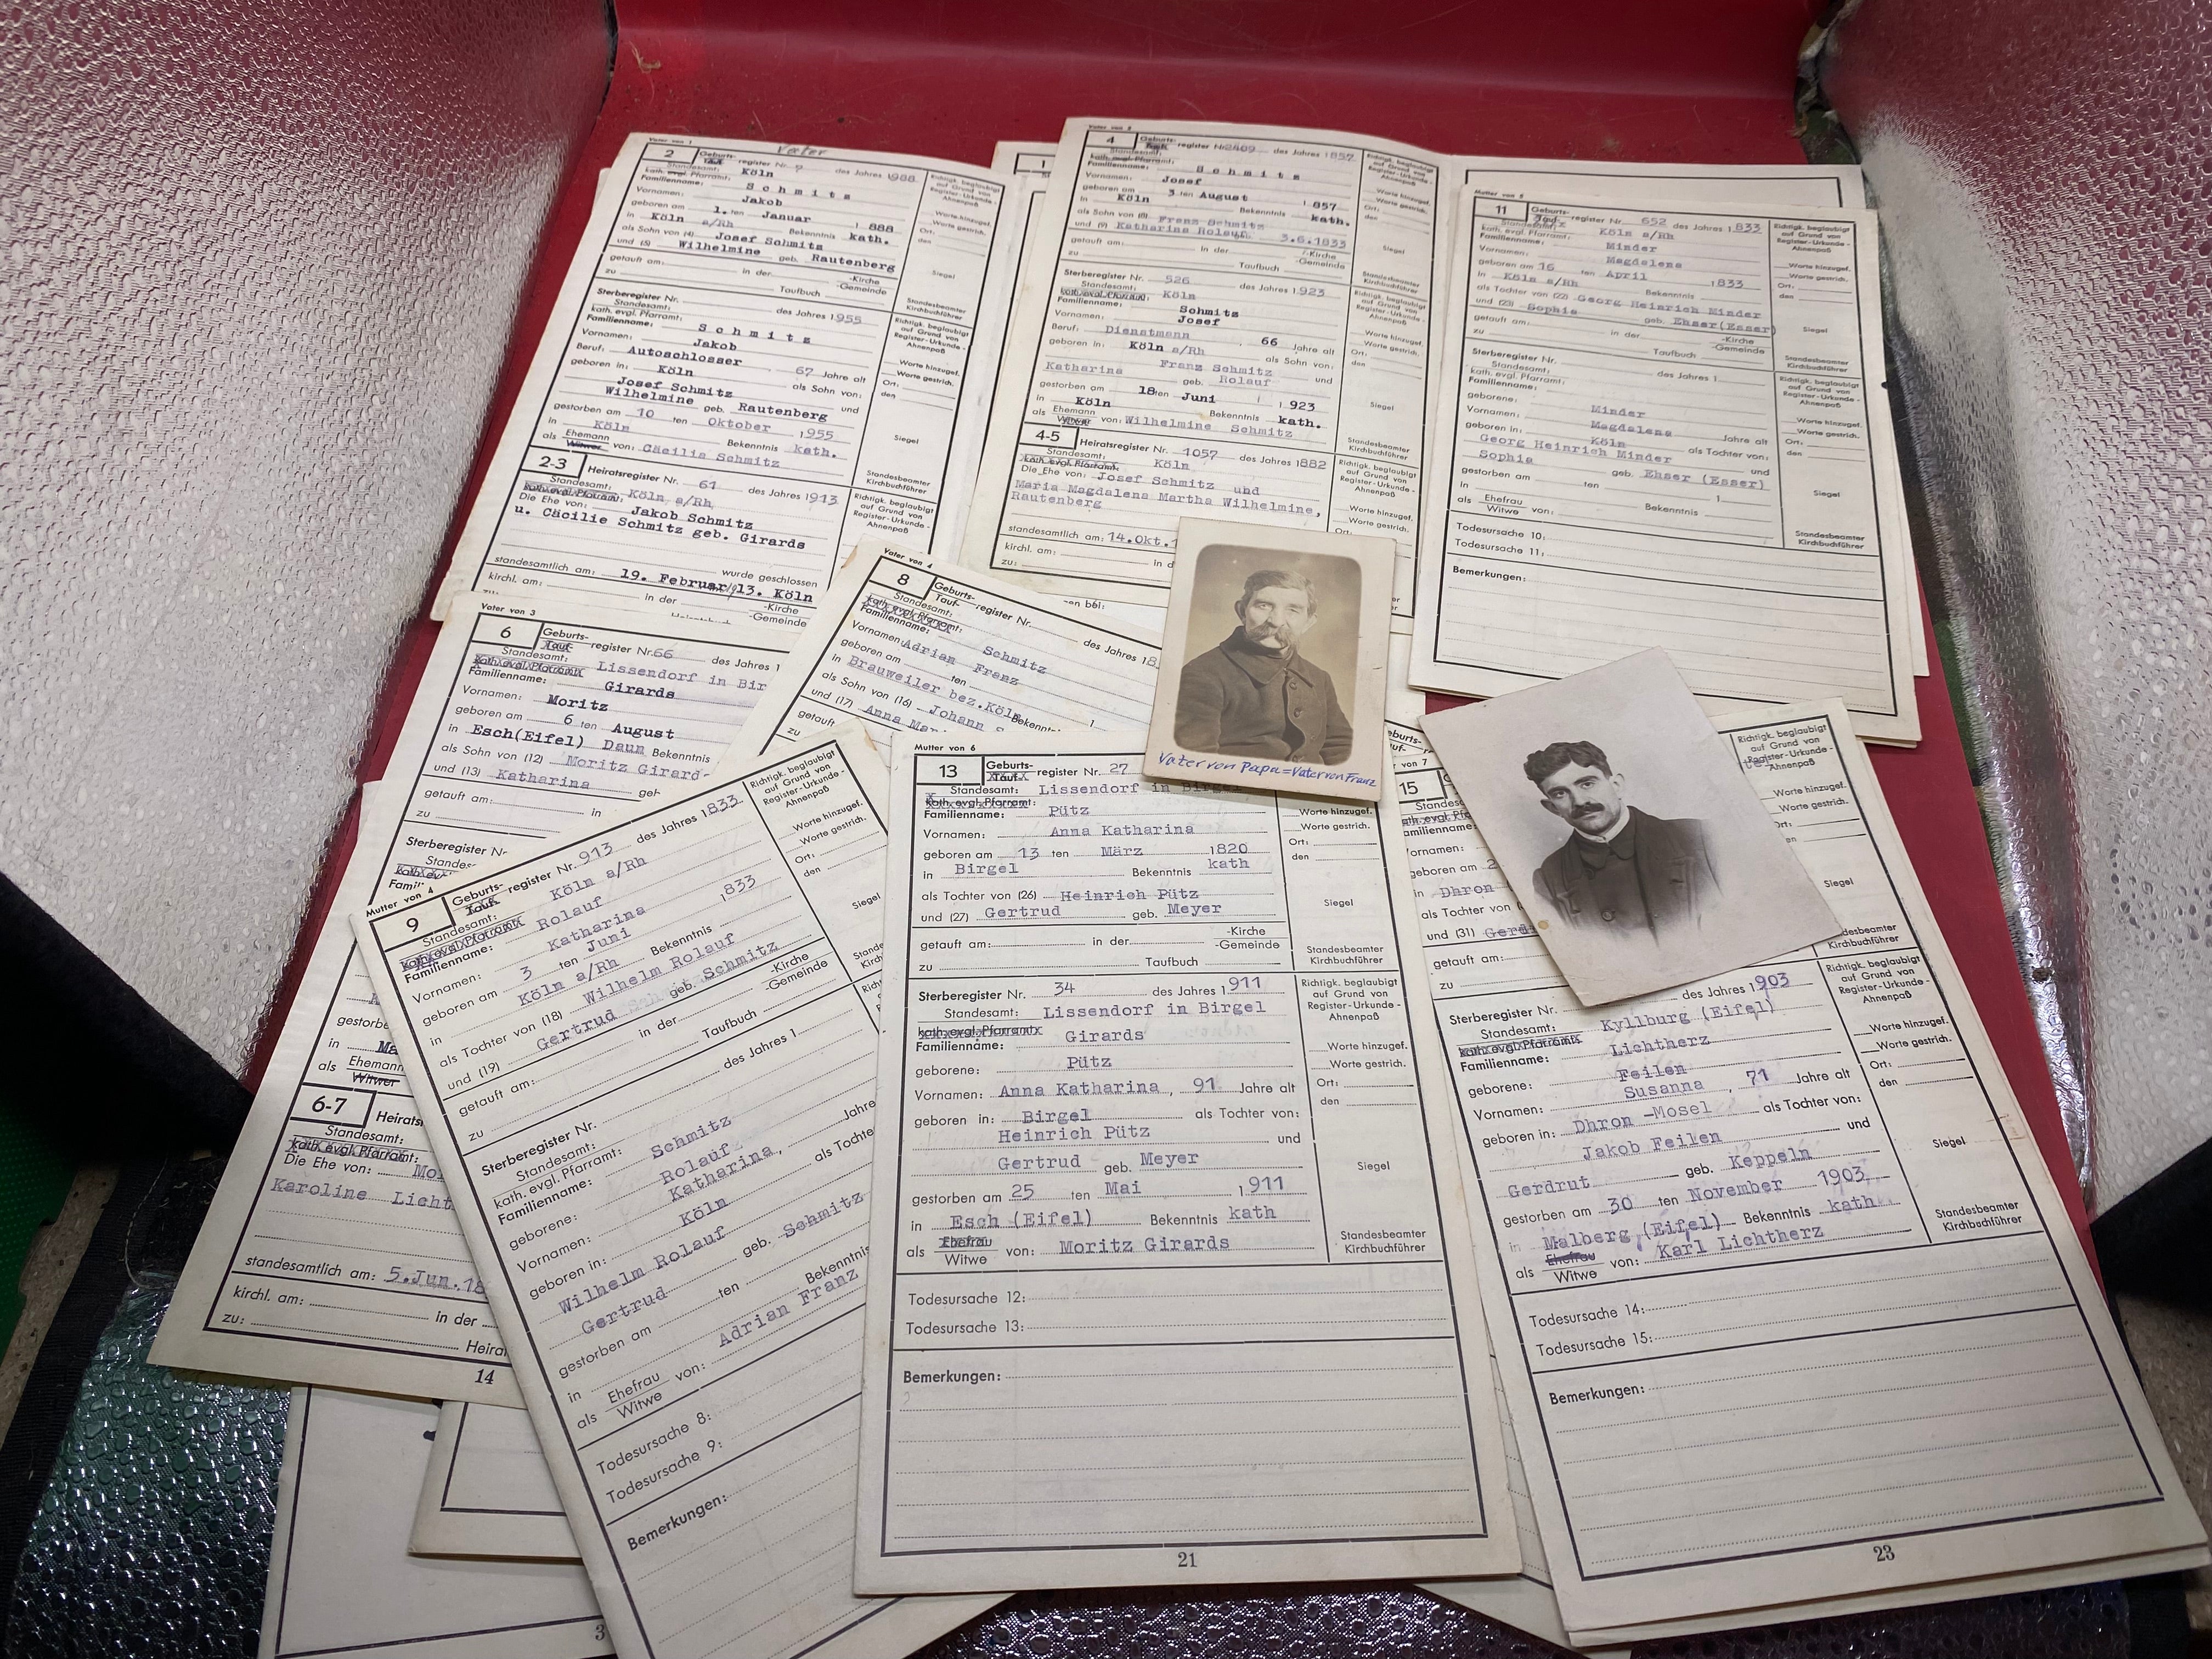 Vater von 1
Vater
2
Geburts-
register Nr. ? des Jahres 1988
Standesamt: Köln
kath. evgl. Pfarramt:
Familienname: Schmitz
Vornamen: Jakob
geboren am 1. ten Januar 1888
in Köln a/Rh Bekenntnis kath.
als Sohn von (4) Josef Schmitz
und (5) Wilhelmine geb. Rautenberg
getauft am: in der -Kirche
-Gemeinde
zu Taufbuch
Richtigk. beglaubigt
auf Grund von
Register-Urkunde -
Ahnenpaß
Worte hinzugef.
Worte gestrich.
Ort:
den
Siegel
Standesbeamter
Kirchbuchführer
Sterberegister Nr. des Jahres 1955
Standesamt:
kath. evgl. Pfarramt:
Familienname: Schmitz
Vornamen: Jakob
Beruf: Autoschlosser 67 Jahre alt
geboren in: Köln als Sohn von:
Josef Schmitz und
Wilhelmine geb. Rautenberg
gestorben am 10 ten Oktober 1955
in Köln Bekenntnis kath.
als Ehemann
Witwer von: Cäcilia Schmitz
Richtigk. beglaubigt
auf Grund von
Register-Urkunde -
Ahnenpaß
Worte hinzugef.
Worte gestrich.
Ort:
den
Siegel
Standesbeamter
Kirchbuchführer
2-3
Heiratsregister Nr. 61 des Jahres 1913
Standesamt:
kath. evgl. Pfarramt: Köln a/Rh
Die Ehe von: Jakob Schmitz
u. Cäcilie Schmitz geb. Girards
standesamtlich am: 19. Februar/13. Köln
wurde geschlossen
kirchl. am: in der -Kirche
-Gemeinde
Richtigk. beglaubigt
auf Grund von
Register-Urkunde -
Ahnenpaß
Worte hinzugef.
Worte gestrich.
1
Vater von 2
4
Geburts-
register Nr. 2409 des Jahres 1857
Standesamt:
kath. evgl. Pfarramt:
Familienname: Schmitz
Vornamen: Josef
geboren am 3 ten August 1857
in Köln Bekenntnis kath.
als Sohn von (8) Franz Schmitz
und (9) Katharina Rolauf 3.6.1833
getauft am: in der -Kirche
-Gemeinde
zu Taufbuch
Sterberegister Nr. 526 des Jahres 1923
Standesamt:
kath. evgl. Pfarramt: Köln
Familienname: Schmitz
Vornamen: Josef
Beruf: Dienstmann 66 Jahre alt
geboren in: Köln a/Rh als Sohn von:
Franz Schmitz und
Katharina geb. Rolauf
gestorben am 18 ten Juni 1923
in Köln Bekenntnis kath.
als Ehemann
Witwer von: Wilhelmine Schmitz
4-5
Heiratsregister Nr. 1057 des Jahres 1882
Standesamt:
kath. evgl. Pfarramt: Köln
Die Ehe von: Josef Schmitz und
Maria Magdalena Martha Wilhelmine,
Rautenberg
standesamtlich am: 14.Okt.
kirchl. am: in d
zu:
Mutter von 5
11
Geburts-
Tauf- register Nr. 652 des Jahres 1833
Köln a/Rh
kath. evgl. Pfarramt:
Familienname: Minder
Vornamen: Magdalena
geboren am 16 ten April 1833
in Köln a/Rh Bekenntnis
als Tochter von (22) Georg Heinrich Minder
und (23) Sophia geb. Ehser(Esser)
getauft am: in der -Kirche
-Gemeinde
zu Taufbuch
Richtigk. beglaubigt
auf Grund von
Register-Urkunde -
Ahnenpaß
Worte hinzugef.
Worte gestrich.
Ort:
den
Siegel
Standesbeamter
Kirchbuchführer
Sterberegister Nr. des Jahres 1
Standesamt:
kath. evgl. Pfarramt:
Familienname:
geborene: Minder
Vornamen: Magdalena Jahre alt
geboren in: Köln als Tochter von:
Georg Heinrich Minder und
Sophia geb. Ehser (Esser)
gestorben am ten 1
in Bekenntnis
als Ehefrau
Witwe von:
Todesursache 10:
Todesursache 11:
Bemerkungen:
Vater von 3
6
Geburts-
Tauf- register Nr. 66 des Jahres 1
Standesamt: Lissendorf in Bir
kath. evgl. Pfarramt:
Familienname: Girards
Vornamen: Moritz
geboren am 6 ten August
in Esch(Eifel) Daun Bekenntnis
als Sohn von (12) Moritz Girard
und (13) Katharina
getauft am: in
zu
Sterberegister Nr
Vater von 4
8
Geburts-
Tauf- register Nr. des Jahres 18
Standesamt:
kath. evgl. Pfarramt:
Familienname: Schmitz
Vornamen: Adrian Franz
geboren am ten
in Brauweiler bez.Köln Bekennt
als Sohn von (16) Johann S
und (17) Anna Mar
getauft
zu
Vater von Papa = Vater von Franz
als Ehemann
Witwer
6-7
Heirats
Standesamt:
kath. evgl. Pfarramt:
Die Ehe von: Mo
Karoline Licht
standesamtlich am: 5.Jun.18
kirchl. am: in der
zu: Heirat
14
Mutter von 4
9
Geburts-
Tauf- register Nr. 913 des Jahres 1833
Standesamt: Köln a/Rh
kath. evgl. Pfarramt:
Familienname: Rolauf
Vornamen: Katharina
geboren am 3 ten Juni 1833
in Köln a/Rh Bekenntnis
als Tochter von (18) Wilhelm Rolauf
und (19) Gertrud geb. Schmitz
getauft am: in der -Kirche
-Gemeinde
zu Taufbuch
Richtigk. beglaubigt
auf Grund von
Register-Urkunde -
Ahnenpaß
Worte hinzugef.
Worte gestrich.
Ort:
den
Siegel
Sterberegister Nr. des Jahres 1
Standesamt:
kath. evgl. Pfarramt:
Familienname: Schmitz
geborene: Rolauf
Vornamen: Katharina, Jahre
geboren in: Köln als Tochte
Wilhelm Rolauf
Gertrud geb. Schmitz
gestorben am ten
in Bekenntnis
als Ehefrau
Witwe von: Adrian Franz
Todesursache 8:
Todesursache 9:
Bemerkungen:
Mutter von 6
13
Geburts-
Tauf- register Nr. 27
Standesamt: Lissendorf in Birgel
kath. evgl. Pfarramt:
Familienname: Pütz
Vornamen: Anna Katharina
geboren am 13 ten März 1820
in Birgel Bekenntnis kath
als Tochter von (26) Heinrich Pütz
und (27) Gertrud geb. Meyer
getauft am: in der -Kirche
-Gemeinde
zu Taufbuch
Worte hinzugef.
Worte gestrich.
Ort:
den
Siegel
Standesbeamter
Kirchbuchführer
Sterberegister Nr. 34 des Jahres 1911
Standesamt: Lissendorf in Birgel
kath. evgl. Pfarramt:
Familienname: Girards
geborene: Pütz
Vornamen: Anna Katharina, 91 Jahre alt
geboren in: Birgel als Tochter von:
Heinrich Pütz und
Gertrud geb. Meyer
gestorben am 25 ten Mai 1911
in Esch (Eifel) Bekenntnis kath
als Ehefrau
Witwe von: Moritz Girards
Richtigk. beglaubigt
auf Grund von
Register-Urkunde -
Ahnenpaß
Worte hinzugef.
Worte gestrich.
Ort:
den
Siegel
Standesbeamter
Kirchbuchführer
Todesursache 12:
Todesursache 13:
Bemerkungen:
21
von 7
15
geboren am 2
in Dhron
als Tochter von
und (31) Gerd
getauft am:
zu
Richtigk. beglaubigt
auf Grund von
Register-Urkunde -
Ahnenpaß
Worte hinzugef.
Worte gestrich.
Siegel
Standesbeamter
Kirchbuchführer
Sterberegister Nr. des Jahres 1903
Standesamt: Kyllburg (Eifel)
kath. evgl. Pfarramt:
Familienname: Lichtherz
geborene: Feilen
Vornamen: Susanna, 71 Jahre alt
geboren in: Dhron -Mosel als Tochter von:
Jakob Feilen und
Gerdrut geb. Keppeln
gestorben am 30 ten November 1903
in Malberg (Eifel) Bekenntnis kath
als Ehefrau
Witwe von: Karl Lichtherz
Richtigk. beglaubigt
auf Grund von
Register-Urkunde -
Ahnenpaß
Worte hinzugef.
Worte gestrich.
Ort:
den
Siegel
Standesbeamter
Kirchbuchführer
Todesursache 14:
Todesursache 15:
Bemerkungen:
23
3